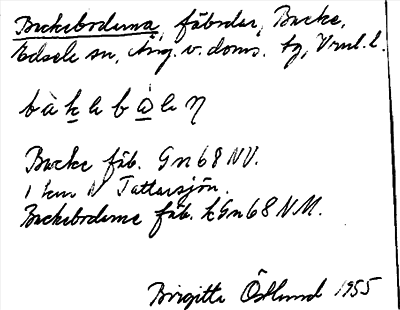 Backebodarna, fäbodar, Backe,
Edsele sn, Ång. v. doms. tg, Vnml. l.
bàkabòḷaη
Backe fäb. Gn 68 NV.
1 km N Tattarsjön.
Backebodarne fäb. kGn 68 NV.
Birgitta Östlund 1955